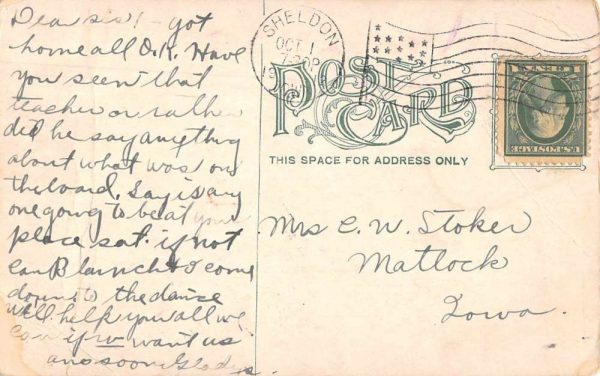 Dear sis! - got
home all O.K. Have
you seen that
teacher or rather
did he say anything
about what was on
the board. Say is any
one going to be at your
place sat. if not
can Blanch & I come
down to the dance
we'll help you all we
can if u want us
ans soon Gladys.
SHELDON
OCT 1
7 30 P
POST
CARD
THIS SPACE FOR ADDRESS ONLY
U.S. POSTAGE
Mrs C. W. Stoker
Matlock
Iowa.